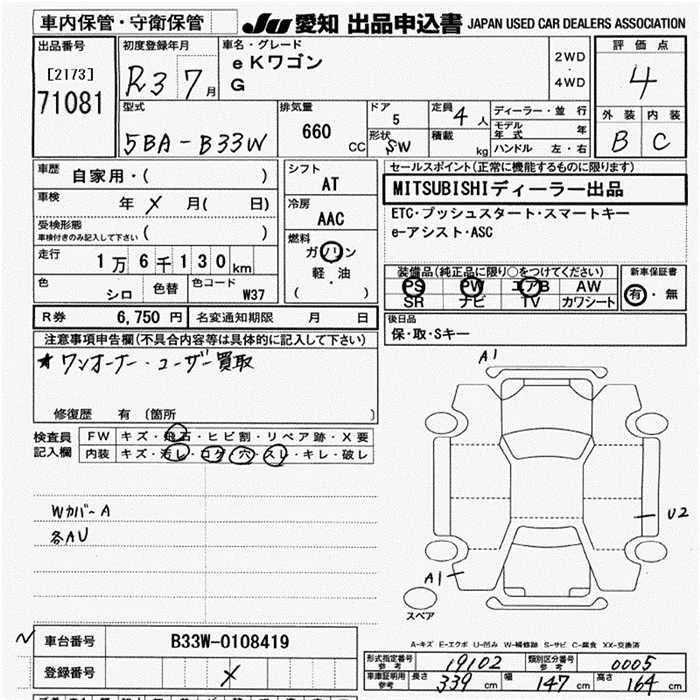 車内保管・守衛保管
JU 愛知 出品申込書 JAPAN USED CAR DEALERS ASSOCIATION
出品番号
[2173]
71081
初度登録年月
R3 7月
車名・グレード
eKワゴン
G
2WD
・
4WD
評価点
4
外装 内装
B C
型式
5BA-B33W
排気量
660
CC
ドア
5
形状
SW
定員 4人
積載 kg
ディーラー・並行
モデル年式 年
ハンドル 左・右
車歴
自家用・( )
車検 年 × 月( 日)
受検形態
車検付きのみ記入して下さい ( )
走行
1万6千130km
色
シロ
色替
色コード
W37
シフト
AT
冷房
AAC
燃料
ガソリン
軽・油
( )
セールスポイント(正常に機能するものに限ります)
MITSUBISHIディーラー出品
ETC・プッシュスタート・スマートキー
e-アシスト・ASC
装備品(純正品に限り○をつけてください)
PS PW エアB AW
SR ナビ TV カワシート
新車保証書
有・無
R券 6,750円 名変通知期限 月 日
後日品
保・取・Sキー
注意事項申告欄(不具合内容等は具体的に記入して下さい)
★ワンオーナー・ユーザー買取
修復歴 有 〔箇所 〕
検査員
記入欄
FW キズ・飛石・ヒビ割・リペア跡・X要
内装 キズ・汚レ・コゲ・穴・スレ・キレ・破レ
Wカバー A
各AU
A1
U2
A1
スペア
車台番号 B33W-0108419
登録番号 ×
A-キズ E-エクボ U-凹み W-補修跡 S-サビ C-腐食 XX-交換済
形式指定番号 参考 19102 類別区分番号 参考 0005
車庫証明用 参考 長さ 339 cm 幅 147 cm 高さ 164 cm